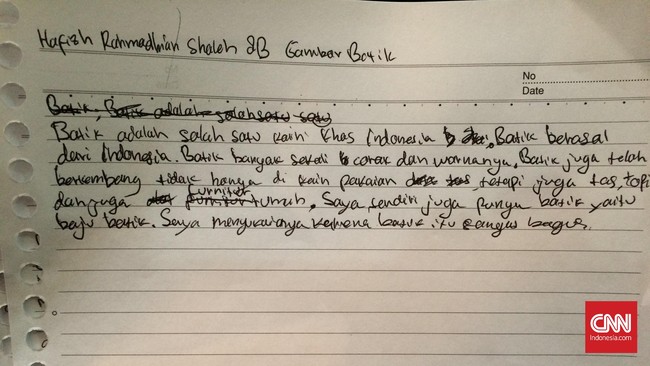 Hafizh Rahmadhian Shaleh 8B Gambar Batik
No
Date
Batik, Batik adalah salah satu satu
Batik adalah salah satu kain khas Indonesia. Batik berasal
dari Indonesia. Batik banyak sekali corak dan warnanya. Batik juga telah
berkembang tidak hanya di kain pakaian tetapi juga tas, topi
dan juga furnitur rumah. Saya sendiri juga punya batik yaitu
baju batik. Saya menyukainya karena batik itu sangat bagus.
CNN
Indonesia.com